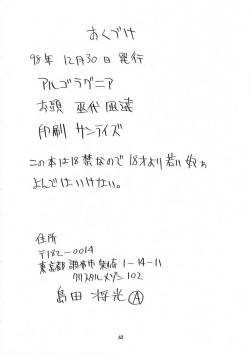 おくづけ
98年 12月30日 発行
アルゴラグニア
お頭 巫代凪遠
印刷 サンライズ
この本は18禁なので18才より若い奴ぁ
よんではいけない。
住所
〒182-0014
東京都 調布市 柴崎 1-14-11
クリスタルメゾン102
島田 将光 Ⓐ